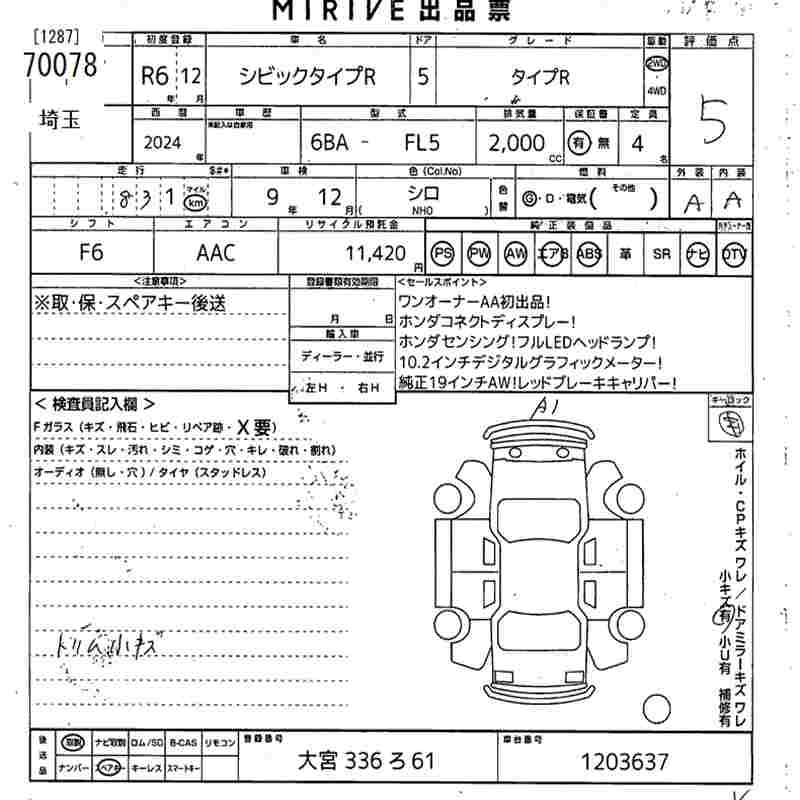 MIRIVE 出品票
[1287]
70078
埼玉
初度登録 車名 ドア グレード 駆動 評価点
R6 12 シビックタイプR 5 タイプR 2WD
年 月 4WD
5
西暦 車歴 型式 排気量 保証書 定員
※記入以外自家用
2024 6BA - FL5 2,000 有 無 4
年 CC 名
走行 $#* 車検 色(Col.No) 色替 燃料 外装 内装
831 マイル km 9 12 シロ G・D・電気( その他 ) A A
年 月 ( NH0 )
シフト エアコン リサイクル預託金 純正装備品
F6 AAC 11,420 PS PW AW エアB ABS 革 SR ナビ DTV
円
<注意事項> 登録書類有効期限 <セールスポイント>
※取・保・スペアキー後送
月 日
輸入車
ディーラー・並行
左H ・ 右H
ワンオーナーAA初出品!
ホンダコネクトディスプレー!
ホンダセンシング!フルLEDヘッドランプ!
10.2インチデジタルグラフィックメーター!
純正19インチAW!レッドブレーキキャリパー!
< 検査員記入欄 >
Fガラス(キズ・飛石・ヒビ・リペア跡・X要)
内装(キズ・スレ・汚れ・シミ・コゲ・穴・キレ・破れ・割れ)
オーディオ(無し・穴)/タイヤ(スタッドレス)
トリム小キズ
A1
ホイル・CPキズ ワレ/ドアミラーキズ ワレ
小キズ有/小U有 補修有
後送品 取説 ナビ取説 ロム/SD B-CAS リモコン 登録番号 車台番号
ナンバー スペアキー キーレス スマートキー
大宮 336 ろ 61 1203637